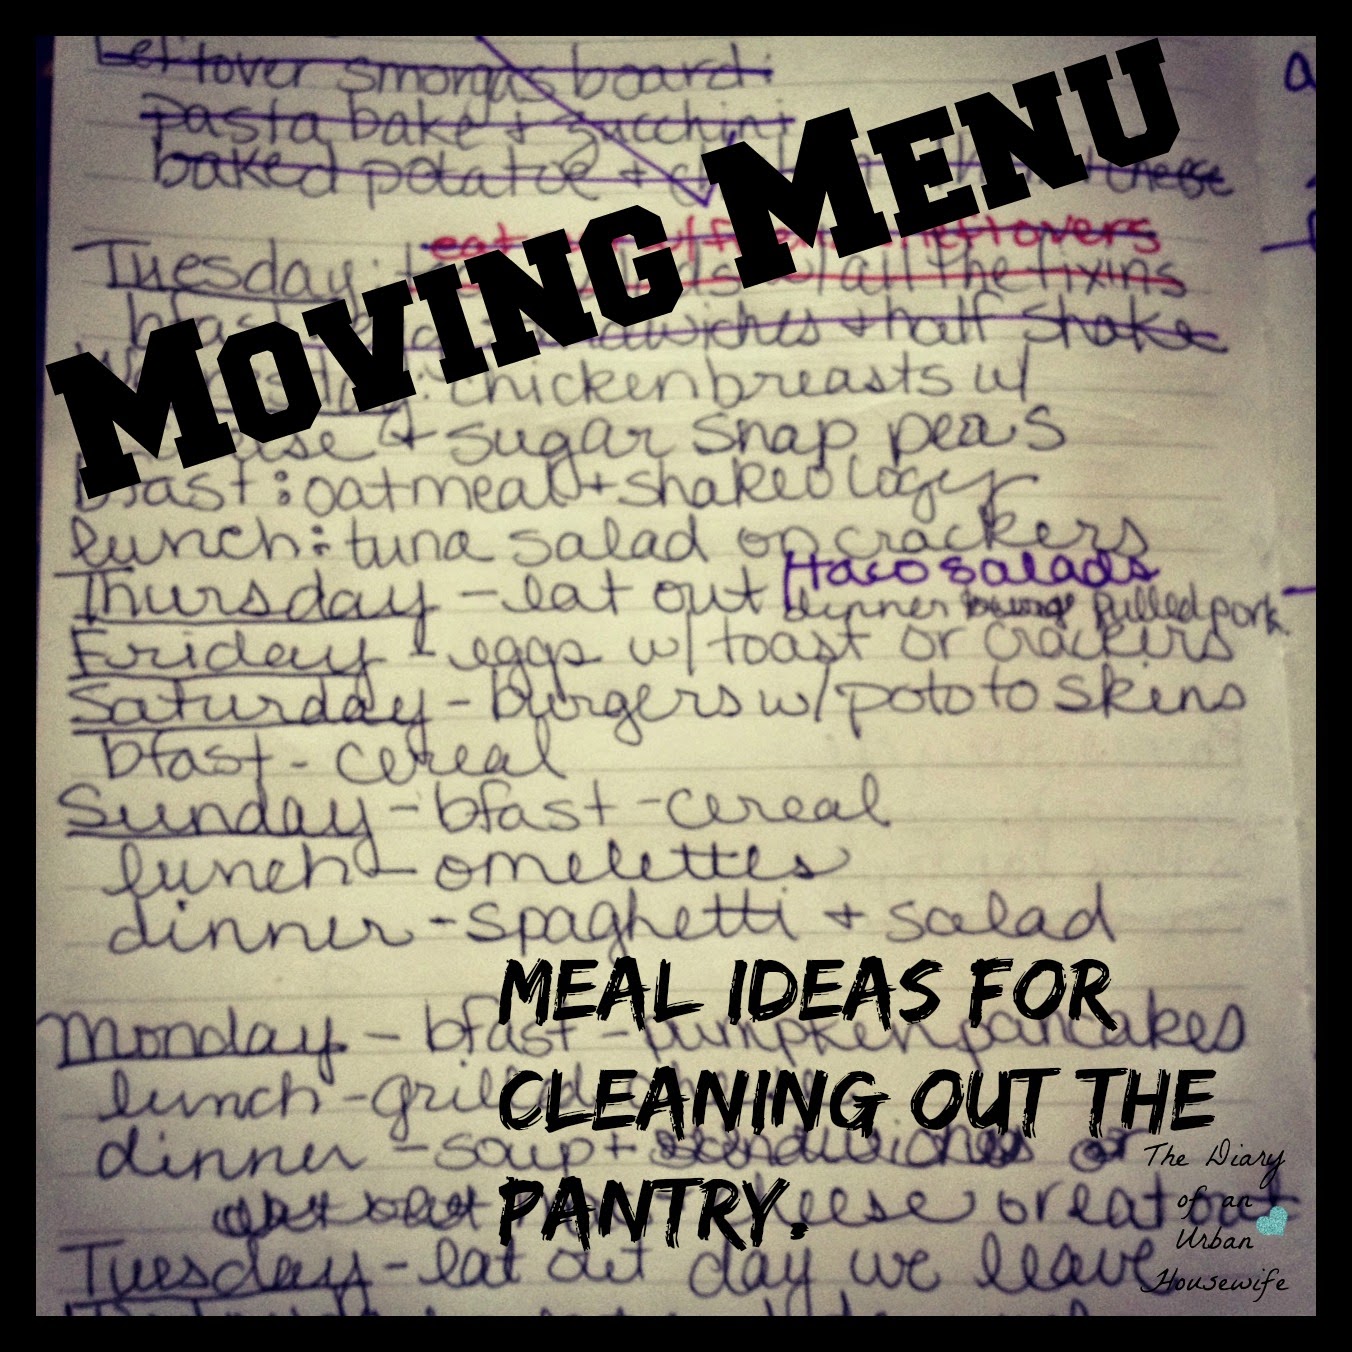 Leftover smorgasboard:
pasta bake + zucchini
baked potatoe + cheese
MOVING MENU
eat leftovers
Tuesday: w/ all the fixins
bfast sandwiches + half shake
chicken breasts w/
+ sugar snap peas
bfast: oatmeal + shakeology
lunch: tuna salad on crackers
Thursday - eat out taco salads
dinner pulled pork
Friday - eggs w/ toast or crackers
Saturday - burgers w/ pototo skins
bfast - cereal
Sunday - bfast - cereal
lunch - omelettes
dinner - spaghetti + salad
MEAL IDEAS FOR
CLEANING OUT THE
PANTRY.
Monday - bfast - pumpken pancakes
lunch - grilled
dinner - soup + sandwiches or
cheese or eat out
Tuesday - eat out day we leave
The Diary
of an
Urban
Housewife